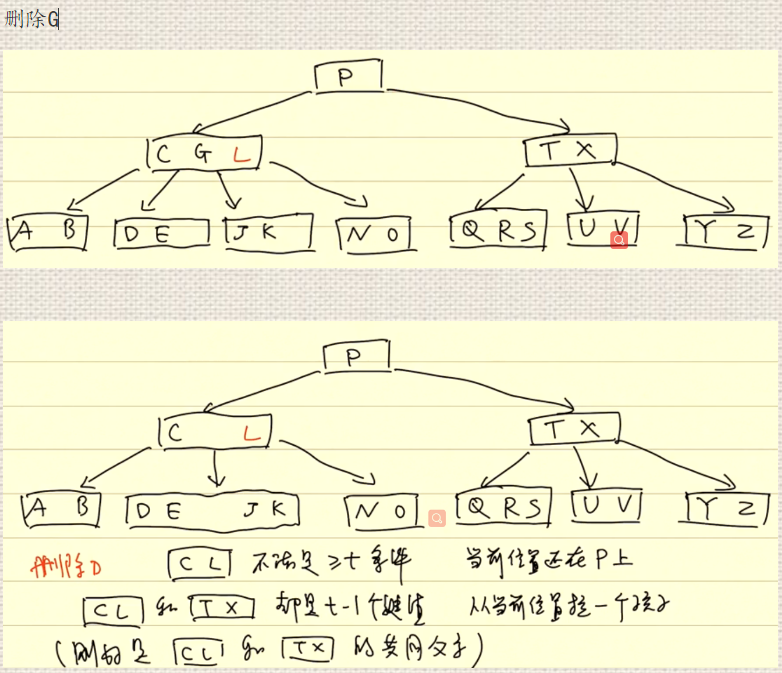 删除G
P
C G L
T X
A B
D E
J K
N O
Q R S
U V
Y Z
P
C L
T X
A B
D E J K
N O
Q R S
U V
Y Z
删除D C L 不满足≥t条件 当前位置还在P上
C L 和 T X 都是t-1个键值 从当前位置找一个孩子
(刚好是 C L 和 T X 的共同父亲)